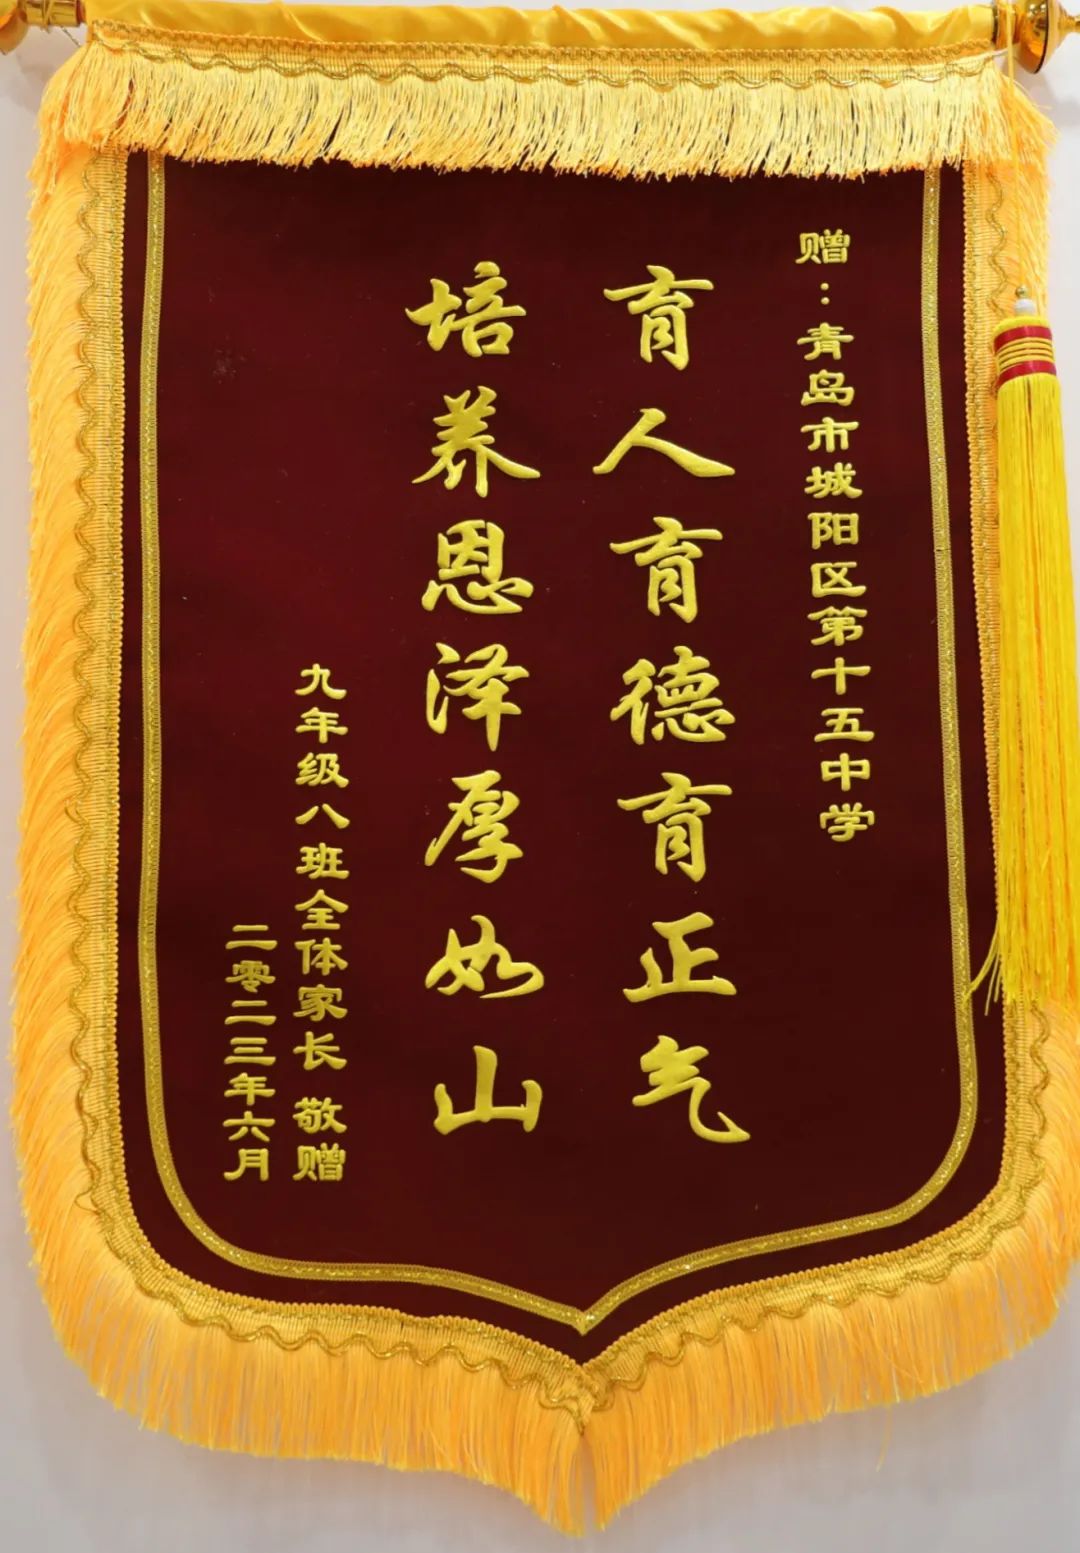 赠：青岛市城阳区第十五中学
育人育德育正气
培养恩泽厚如山
九年级八班全体家长 敬赠
二零二三年六月